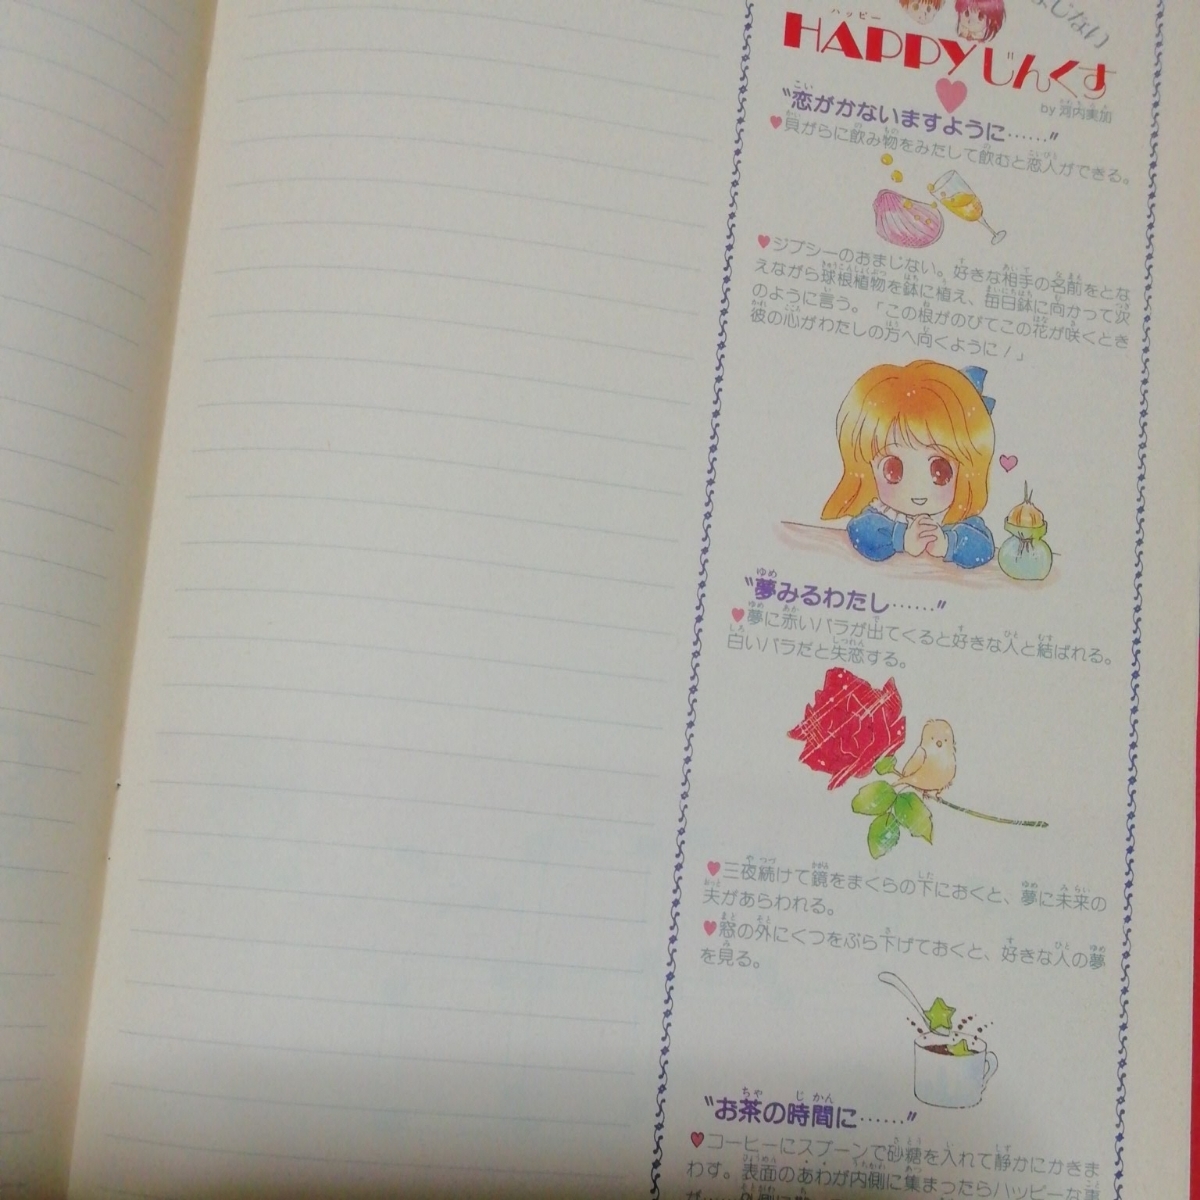 じない
ハッピー
HAPPYじんくす
by 河内実加
"恋がかないますように……"
♥貝がらに飲み物をみたして飲むと恋人ができる。
♥ジプシーのおまじない。好きな相手の名前をとな
えながら球根植物を鉢に植え、毎日鉢に向かって次
のように言う。「この根がのびてこの花が咲くとき
彼の心がわたしの方へ向くように！」
"夢みるわたし……"
♥夢に赤いバラが出てくると好きな人と結ばれる。
白いバラだと失恋する。
♥三夜続けて鏡をまくらの下におくと、夢に未来の
夫があらわれる。
♥窓の外にくつをぶら下げておくと、好きな人の夢
を見る。
"お茶の時間に……"
♥コーヒーにスプーンで砂糖を入れて静かにかきま
わす。表面のあわが内側に集まったらハッピーな事
が……